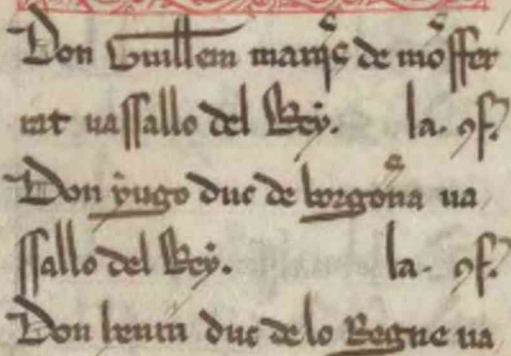 Don Guillem marq̃s de mõffer
rat uassallo del Rey. la. ꝯf.
Don yugo duc de borgoña ua
ssallo del Rey. la. ꝯf.
Don henrri duc de lo Regne ua